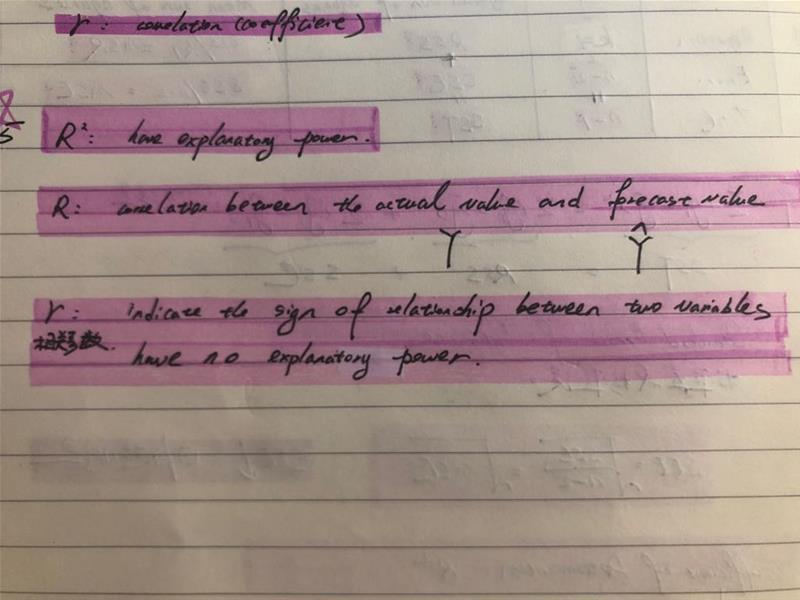 r: correlation (coefficient)
R²: have explanatory power.
R: correlation between the actual value and forecast value
Y Ŷ
r: indicate the sign of relationship between two variables
相关系数. have no explanatory power.